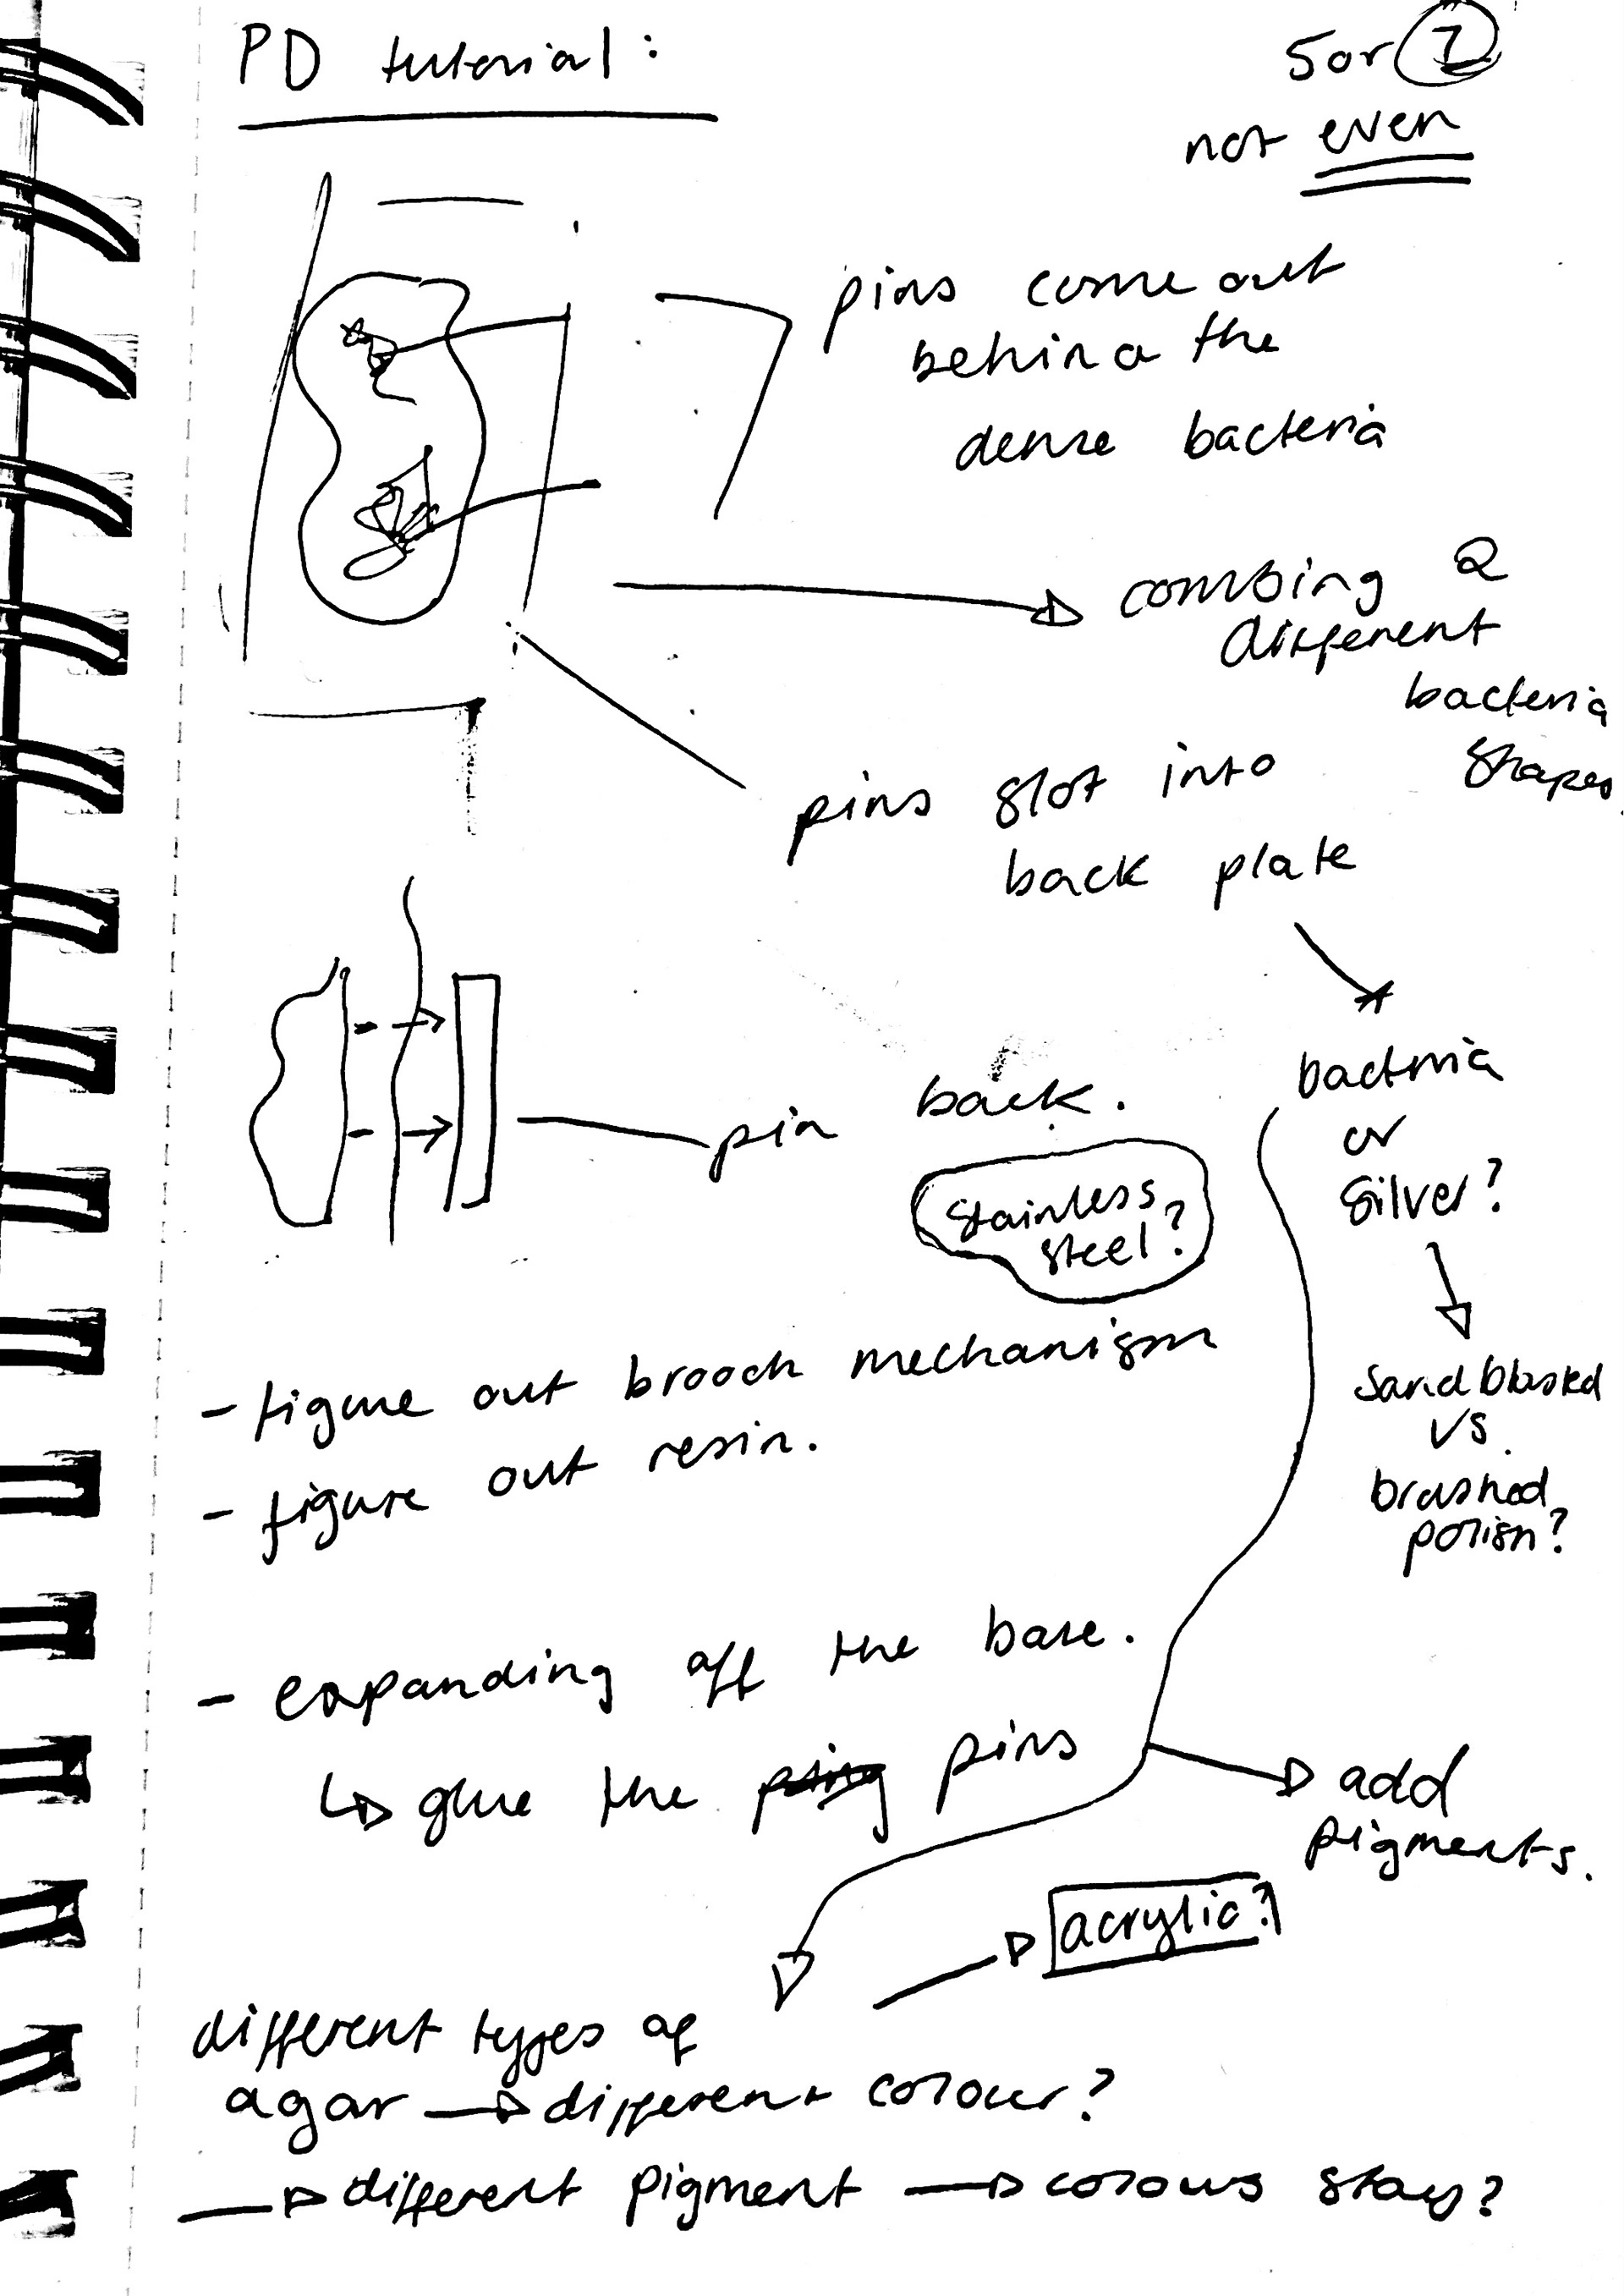 PD tutorial:
5 or 7
not even
pins come out
behind the
dense bacteria
combing 2
different
bacteria
shapes.
pins slot into
back plate
bacteria
or
silver?
pin back.
stainless
steel?
sandblasted
vs.
brushed
polish?
- figure out brooch mechanism
- figure out resin.
- expanding off the base.
↳ glue the pins
add
pigments.
acrylic?
different types of
agar → different colour?
→ different pigment → colours stay?